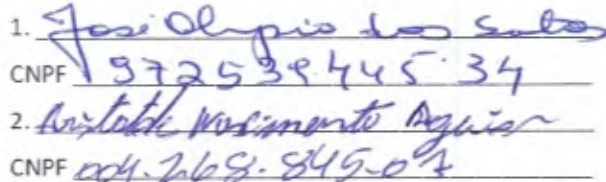 1. José Olympio dos Santos
CNPF 972539445-34
2. Aristotele Nascimento Aguiar
CNPF 004.268.845-07